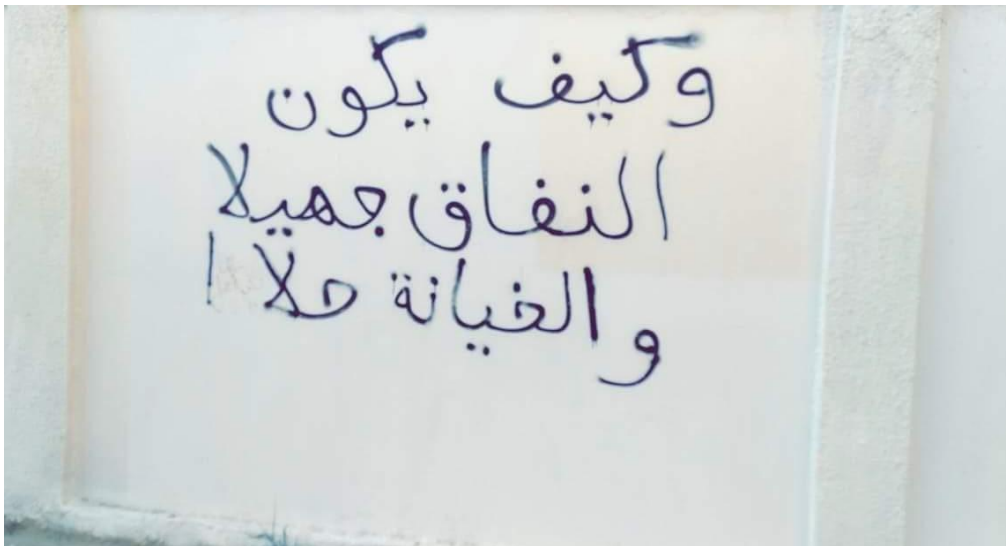 وكيف يكون
النفاق جميلا
والخيانة حلا !